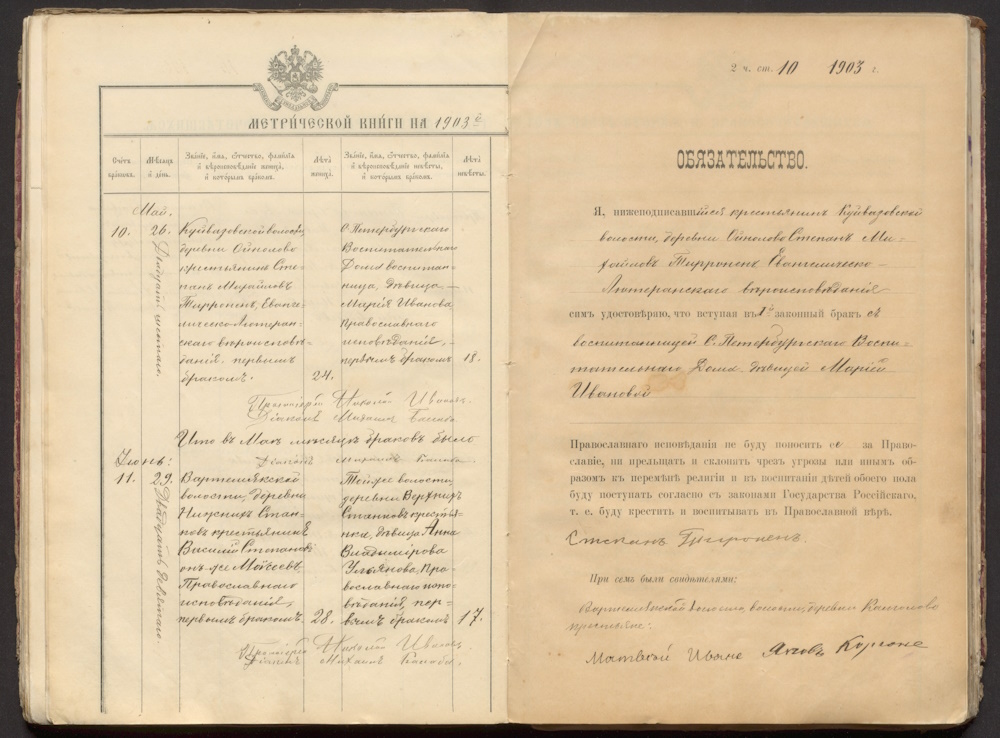 МЕТРИЧЕСКОЙ КНИГИ НА 1903 й
Счетъ браковъ.
Мѣсяцъ и день.
Званіе, имя, отчество, фамилія и вѣроисповѣданіе жениха, и которымъ бракомъ.
Лѣта жениха.
Званіе, имя, отчество, фамилія и вѣроисповѣданіе невѣсты, и которымъ бракомъ.
Лѣта невѣсты.
Май.
10.
26.
Двадцать шестаго.
Куйвазовской волости,
деревни Ойнолово
крестьянинъ Сте-
панъ Михайловъ
Тирроненъ, Еванге-
лическо-Лютеран-
скаго вѣроисповѣ-
данія, первымъ
бракомъ.
24.
С.Петербургскаго
Воспитательнаго
Дома воспитан-
ница, дѣвица,
Марія Иванова,
Православнаго
исповѣданія,
первымъ бракомъ
18.
Протоіерей Николай
Діаконъ Михаилъ
Что въ Маѣ мѣсяцѣ браковъ было
Діаконъ Михаилъ
Іюнь:
11.
29.
Двадцать девятаго.
Вартемякской
волости, деревни
Нижнихъ Стан-
ковъ крестьянинъ
Василій Степановъ
онъ же Моѵсеевъ,
Православнаго
исповѣданія,
первымъ бракомъ.
28.
волости,
деревни Верхнихъ
Станковъ крестья-
нка, дѣвица Анна
Владимірова
Ульянова, Пра-
вославнаго испо-
вѣданія, пер-
вымъ бракомъ
17.
Протоіерей Николай
Діаконъ Михаилъ
2 ч. ст. 10 1903 г.
ОБЯЗАТЕЛЬСТВО.
Я, нижеподписавшійся крестьянинъ Куйвазовской
волости, деревни Ойнолово Степанъ Ми-
хайловъ Тирроненъ Евангелическо-
Лютеранскаго вѣроисповѣданія
симъ удостовѣряю, что вступая въ 1й законный бракъ съ
воспитанницей С.Петербургскаго Воспи-
тательнаго Дома дѣвицей Маріей
Ивановой
Православнаго исповѣданія не буду поносить ее за Право-
славіе, ни прельщать и склонять чрезъ угрозы или инымъ об-
разомъ къ перемѣнѣ религіи и къ воспитаніи дѣтей обоего пола
буду поступать согласно съ законами Государства Россійскаго,
т. е. буду крестить и воспитывать въ Православной вѣрѣ.
Степанъ Тироненъ.
При семъ были свидѣтелями:
волости, деревни
крестьяне:
Матвей Яковъ